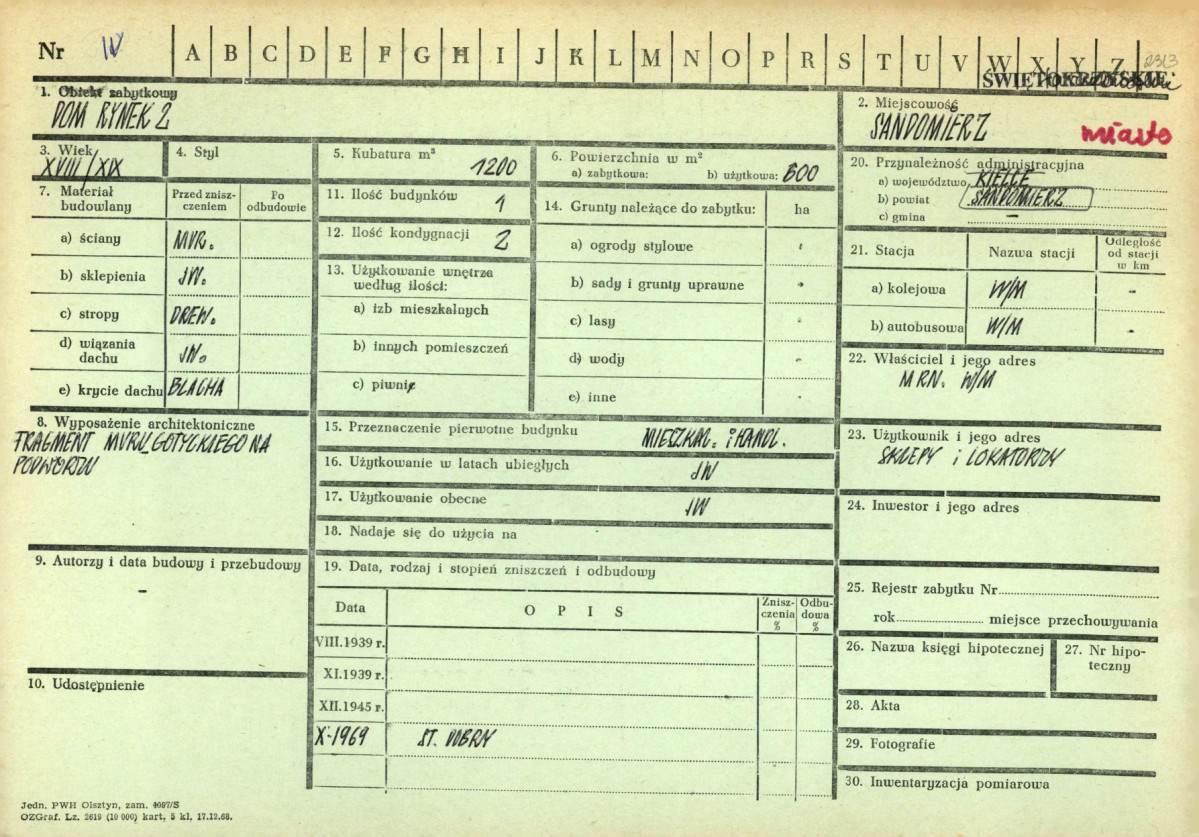 Nr IV A B C D E F G H I J K L M N O P R S T U V W X Y Z 2313
ŚWIĘTOKRZYSKIE
1. Obiekt zabytkowy
DOM RYNEK 2
2. Miejscowość
SANDOMIERZ miasto
3. Wiek
XVIII/XIX
4. Styl
5. Kubatura m³
1200
6. Powierzchnia w m²
a) zabytkowa: b) użytkowa: 600
20. Przynależność administracyjna
a) województwo KIELCE
b) powiat SANDOMIERZ
c) gmina –
7. Materiał budowlany
Przed zniszczeniem
Po odbudowie
a) ściany MUR.
b) sklepienia JW.
c) stropy DREW.
d) wiązania dachu JW.
e) krycie dachu BLACHA
11. Ilość budynków 1
12. Ilość kondygnacji 2
13. Użytkowanie wnętrza
według ilości:
a) izb mieszkalnych
b) innych pomieszczeń
c) piwnic
14. Grunty należące do zabytku: ha
a) ogrody stylowe -
b) sady i grunty uprawne -
c) lasy -
d) wody -
e) inne -
21. Stacja Nazwa stacji Odległość od stacji w km
a) kolejowa W/M -
b) autobusowa W/M -
22. Właściciel i jego adres
MRN. W/M
8. Wyposażenie architektoniczne
FRAGMENT MURU GOTYCKIEGO NA
PODWÓRZU
15. Przeznaczenie pierwotne budynku MIESZKAL. i HANDL.
16. Użytkowanie w latach ubiegłych JW
17. Użytkowanie obecne JW
18. Nadaje się do użycia na
23. Użytkownik i jego adres
SKLEPY i LOKATORZY
24. Inwestor i jego adres
9. Autorzy i data budowy i przebudowy
–
10. Udostępnienie
19. Data, rodzaj i stopień zniszczeń i odbudowy
Data OPIS Zniszczenia % Odbudowa %
VIII.1939 r.
XI.1939 r.
XII.1945 r.
X-1969 ST. DOBRY
25. Rejestr zabytku Nr
rok miejsce przechowywania
26. Nazwa księgi hipotecznej
27. Nr hipoteczny
28. Akta
29. Fotografie
30. Inwentaryzacja pomiarowa
Jedn. PWH Olsztyn, zam. 4097/S
OZGraf. Lz. 2619 (10 000) kart, 5 kl, 17.12.68.